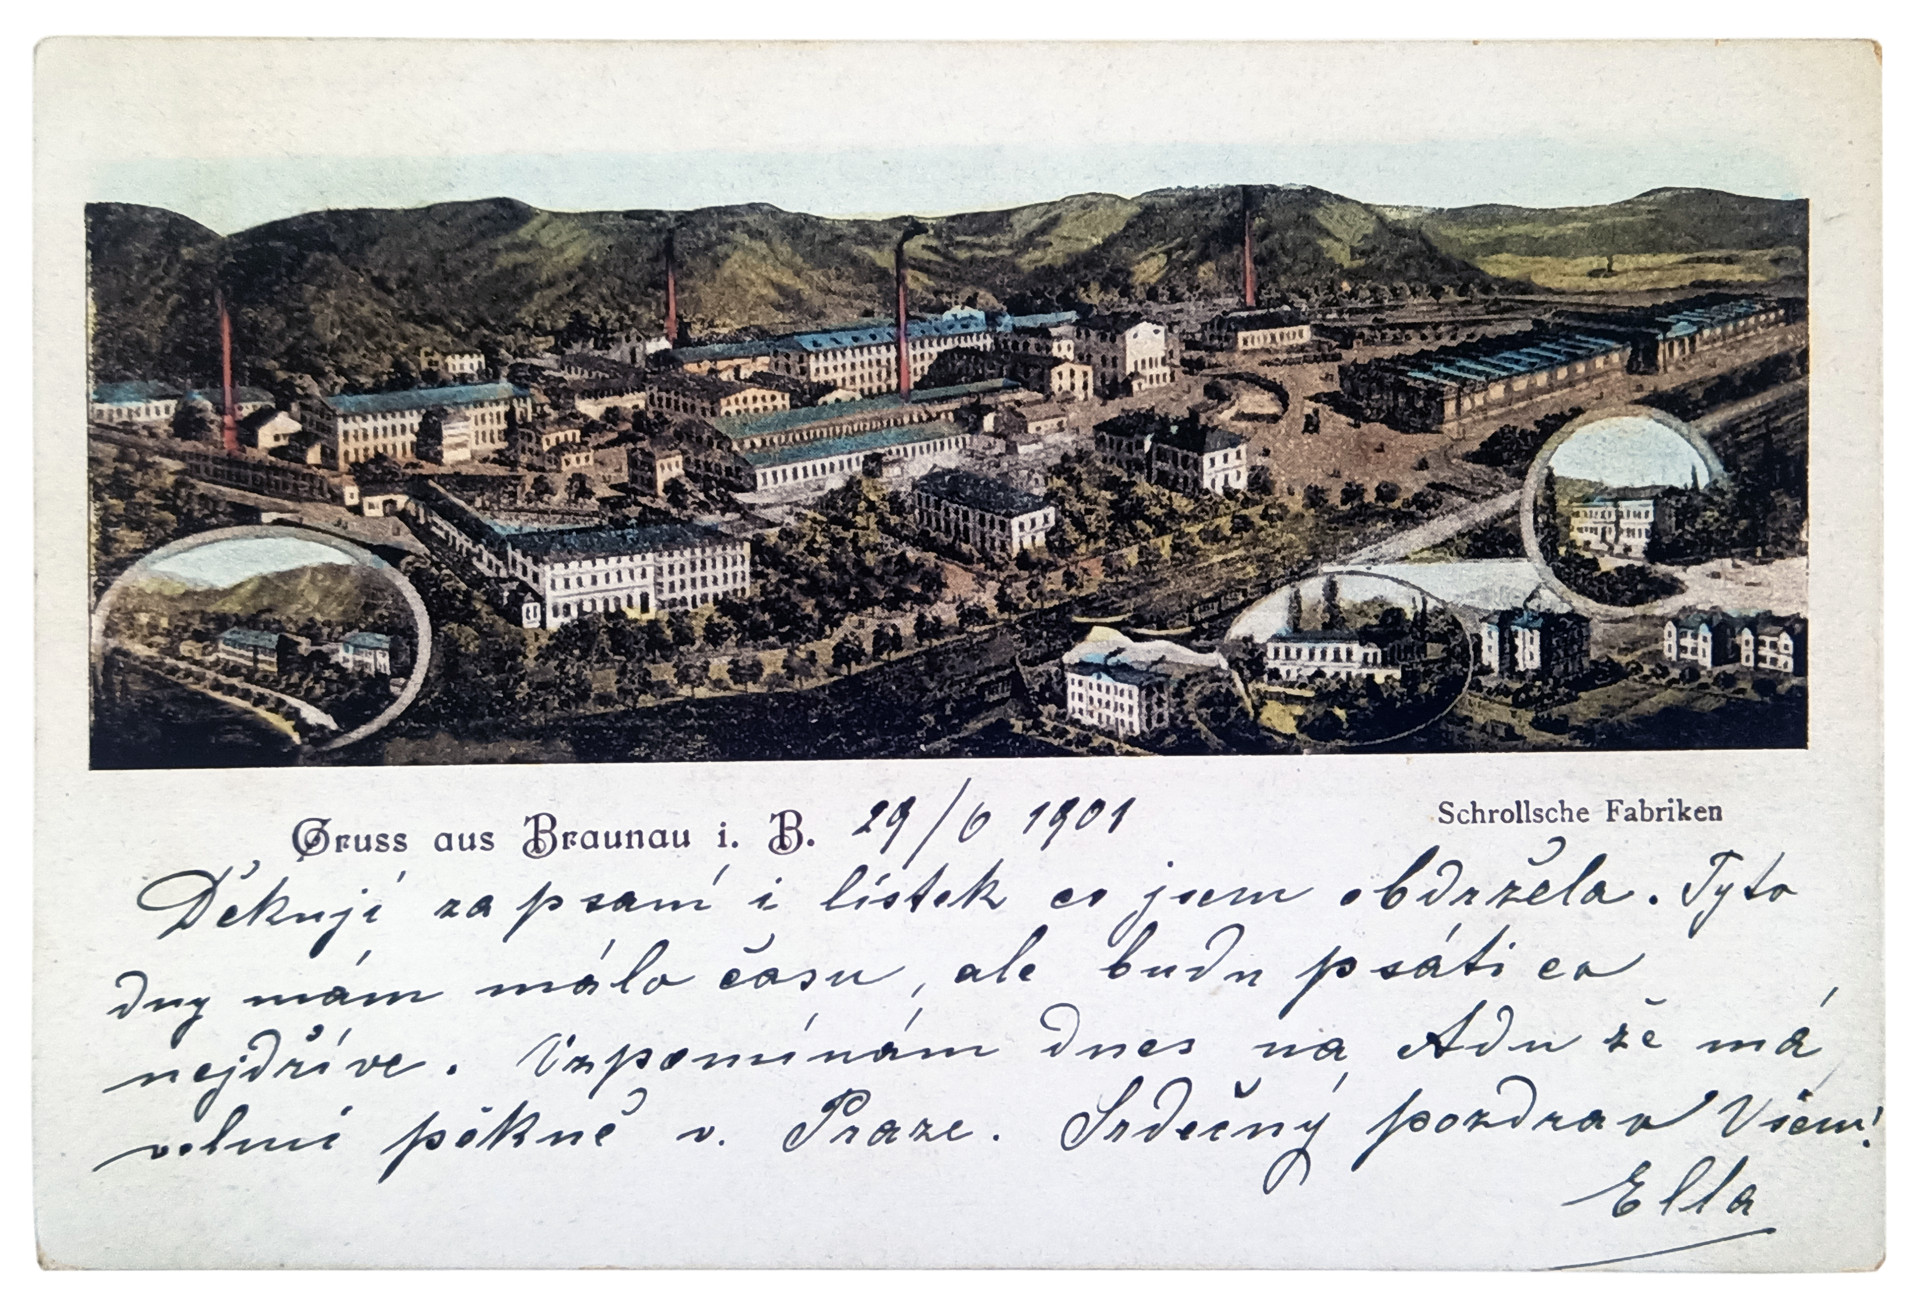 Gruss aus Braunau i. B. 29/6 1901
Schrollsche Fabriken
Děkuji za psaní i lístek co jsem obdržela. Tyto
dny mám málo času, ale budu psáti co
nejdříve. Vzpomínám dnes na Adu že má
velmi pěkně v. Praze. Srdečný pozdrav Všem!
Ella